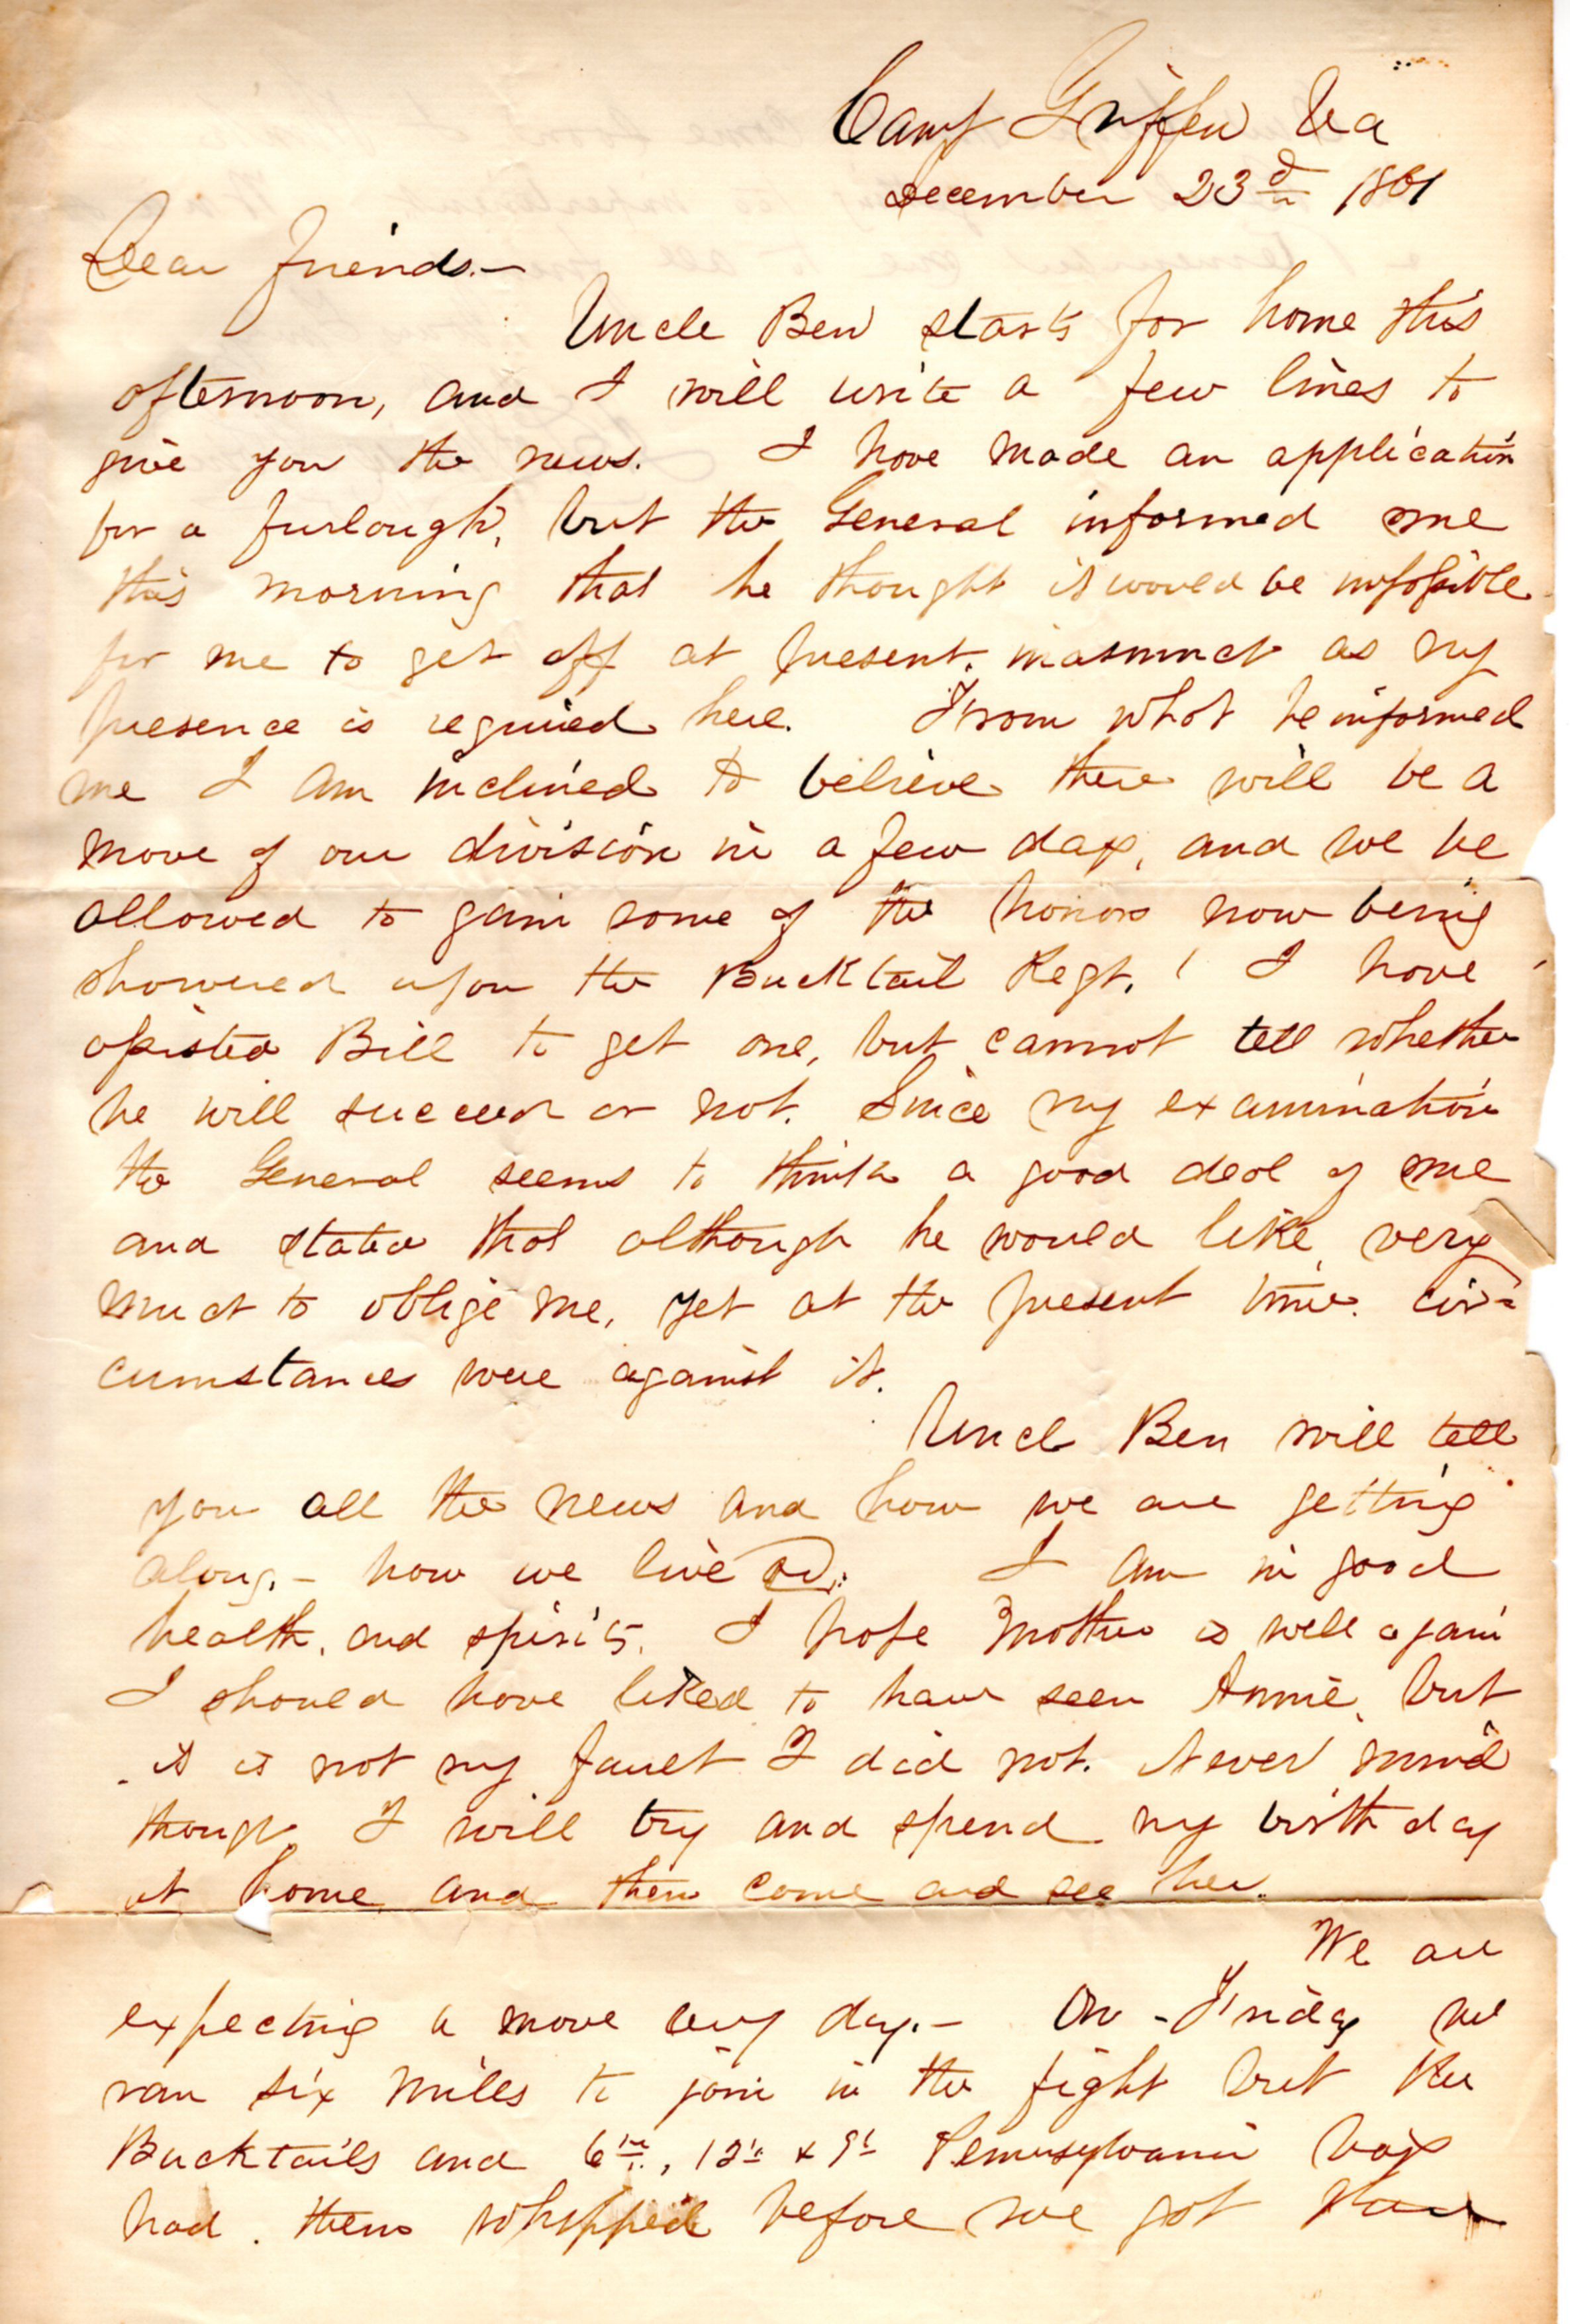 Camp Griffin Va
December 23d 1861
Dear friends.—
Uncle Ben starts for home this
afternoon, and I will write a few lines to
give you the news. I have made an application
for a furlough, but the General informed me
this morning that he thought it would be impossible
for me to get off at present, inasmuch as my
presence is required here. From what he informed
me I am inclined to believe there will be a
move of our division in a few days, and we be
allowed to gain some of the honors now being
showered upon the Bucktail Regt. ! I have
assisted Bill to get one, but cannot tell whether
he will succeed or not. Since my examination
the General seems to think a good deal of me
and stated that although he would like very
much to oblige me, yet at the present time. cir=
cumstances were against it.
Uncle Ben will tell
you all the news and how we are getting
along,— how we live &c. I am in good
health, and spirits. I hope Mother is well again
I should have liked to have seen Annie, but
it is not my fault I did not. Never mind
though, I will try and spend my birth day
at home and then come and see her.
We are
expecting a move every day.— On Friday we
ran six miles to join in the fight but the
Bucktails and 6th, 12th & 9th Pennsylvania boys
had them whipped before we got there